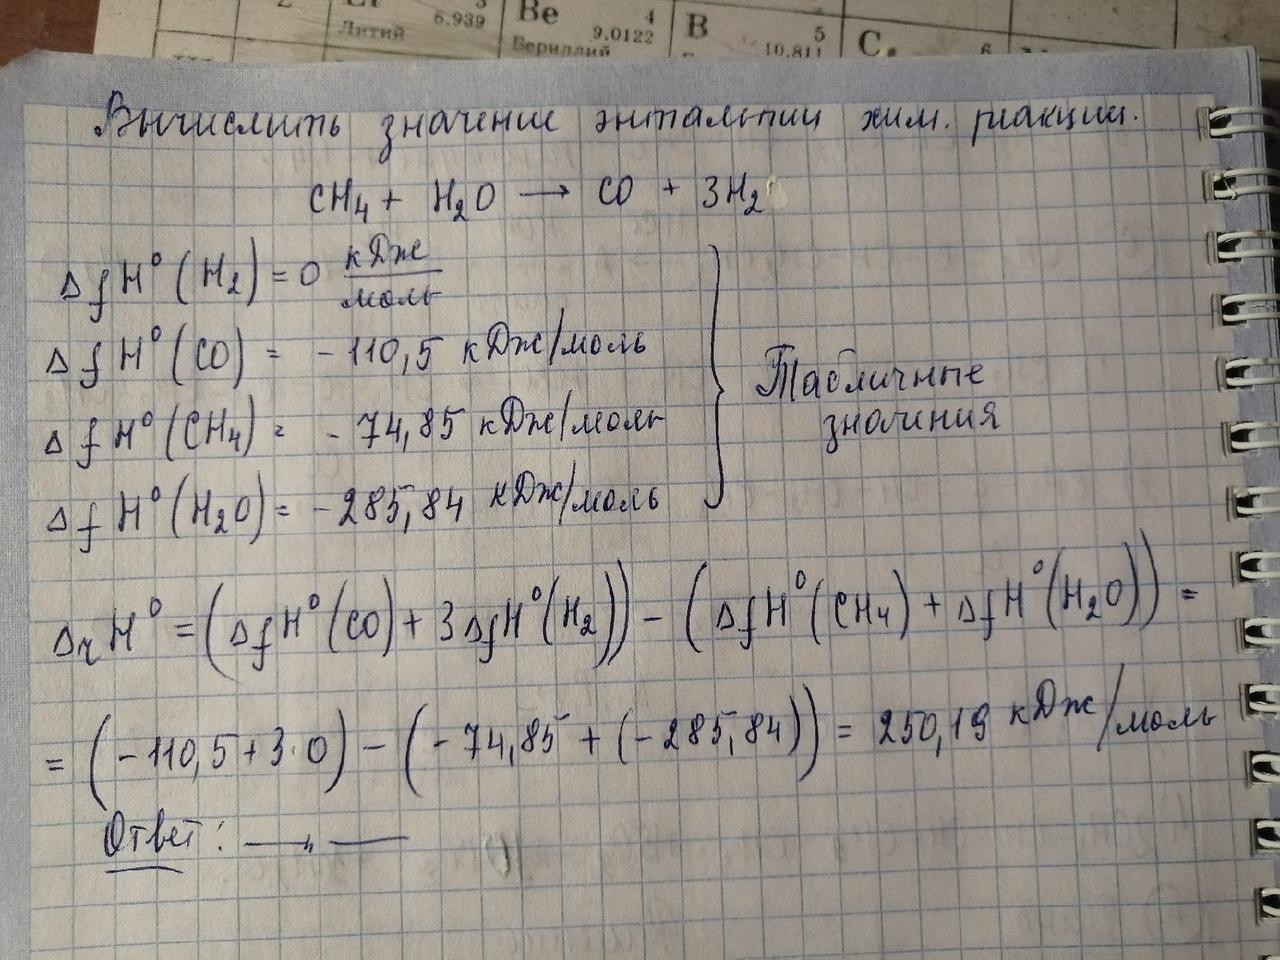 3
6.939
Литий
Be
4
9.0122
Бериллий
B
5
10.811
C
6
Вычислить значение энтальпии хим. реакции.
CH₄ + H₂O → CO + 3H₂
ΔfH⁰(H₂) = 0 кДж/моль
ΔfH⁰(CO) = -110,5 кДж/моль
ΔfH⁰(CH₄) = -74,85 кДж/моль
ΔfH⁰(H₂O) = -285,84 кДж/моль
Табличные
значения
ΔrH⁰ = (ΔfH⁰(CO) + 3ΔfH⁰(H₂)) - (ΔfH⁰(CH₄) + ΔfH⁰(H₂O)) =
= (-110,5 + 3·0) - (-74,85 + (-285,84)) = 250,19 кДж/моль
Ответ: —„—